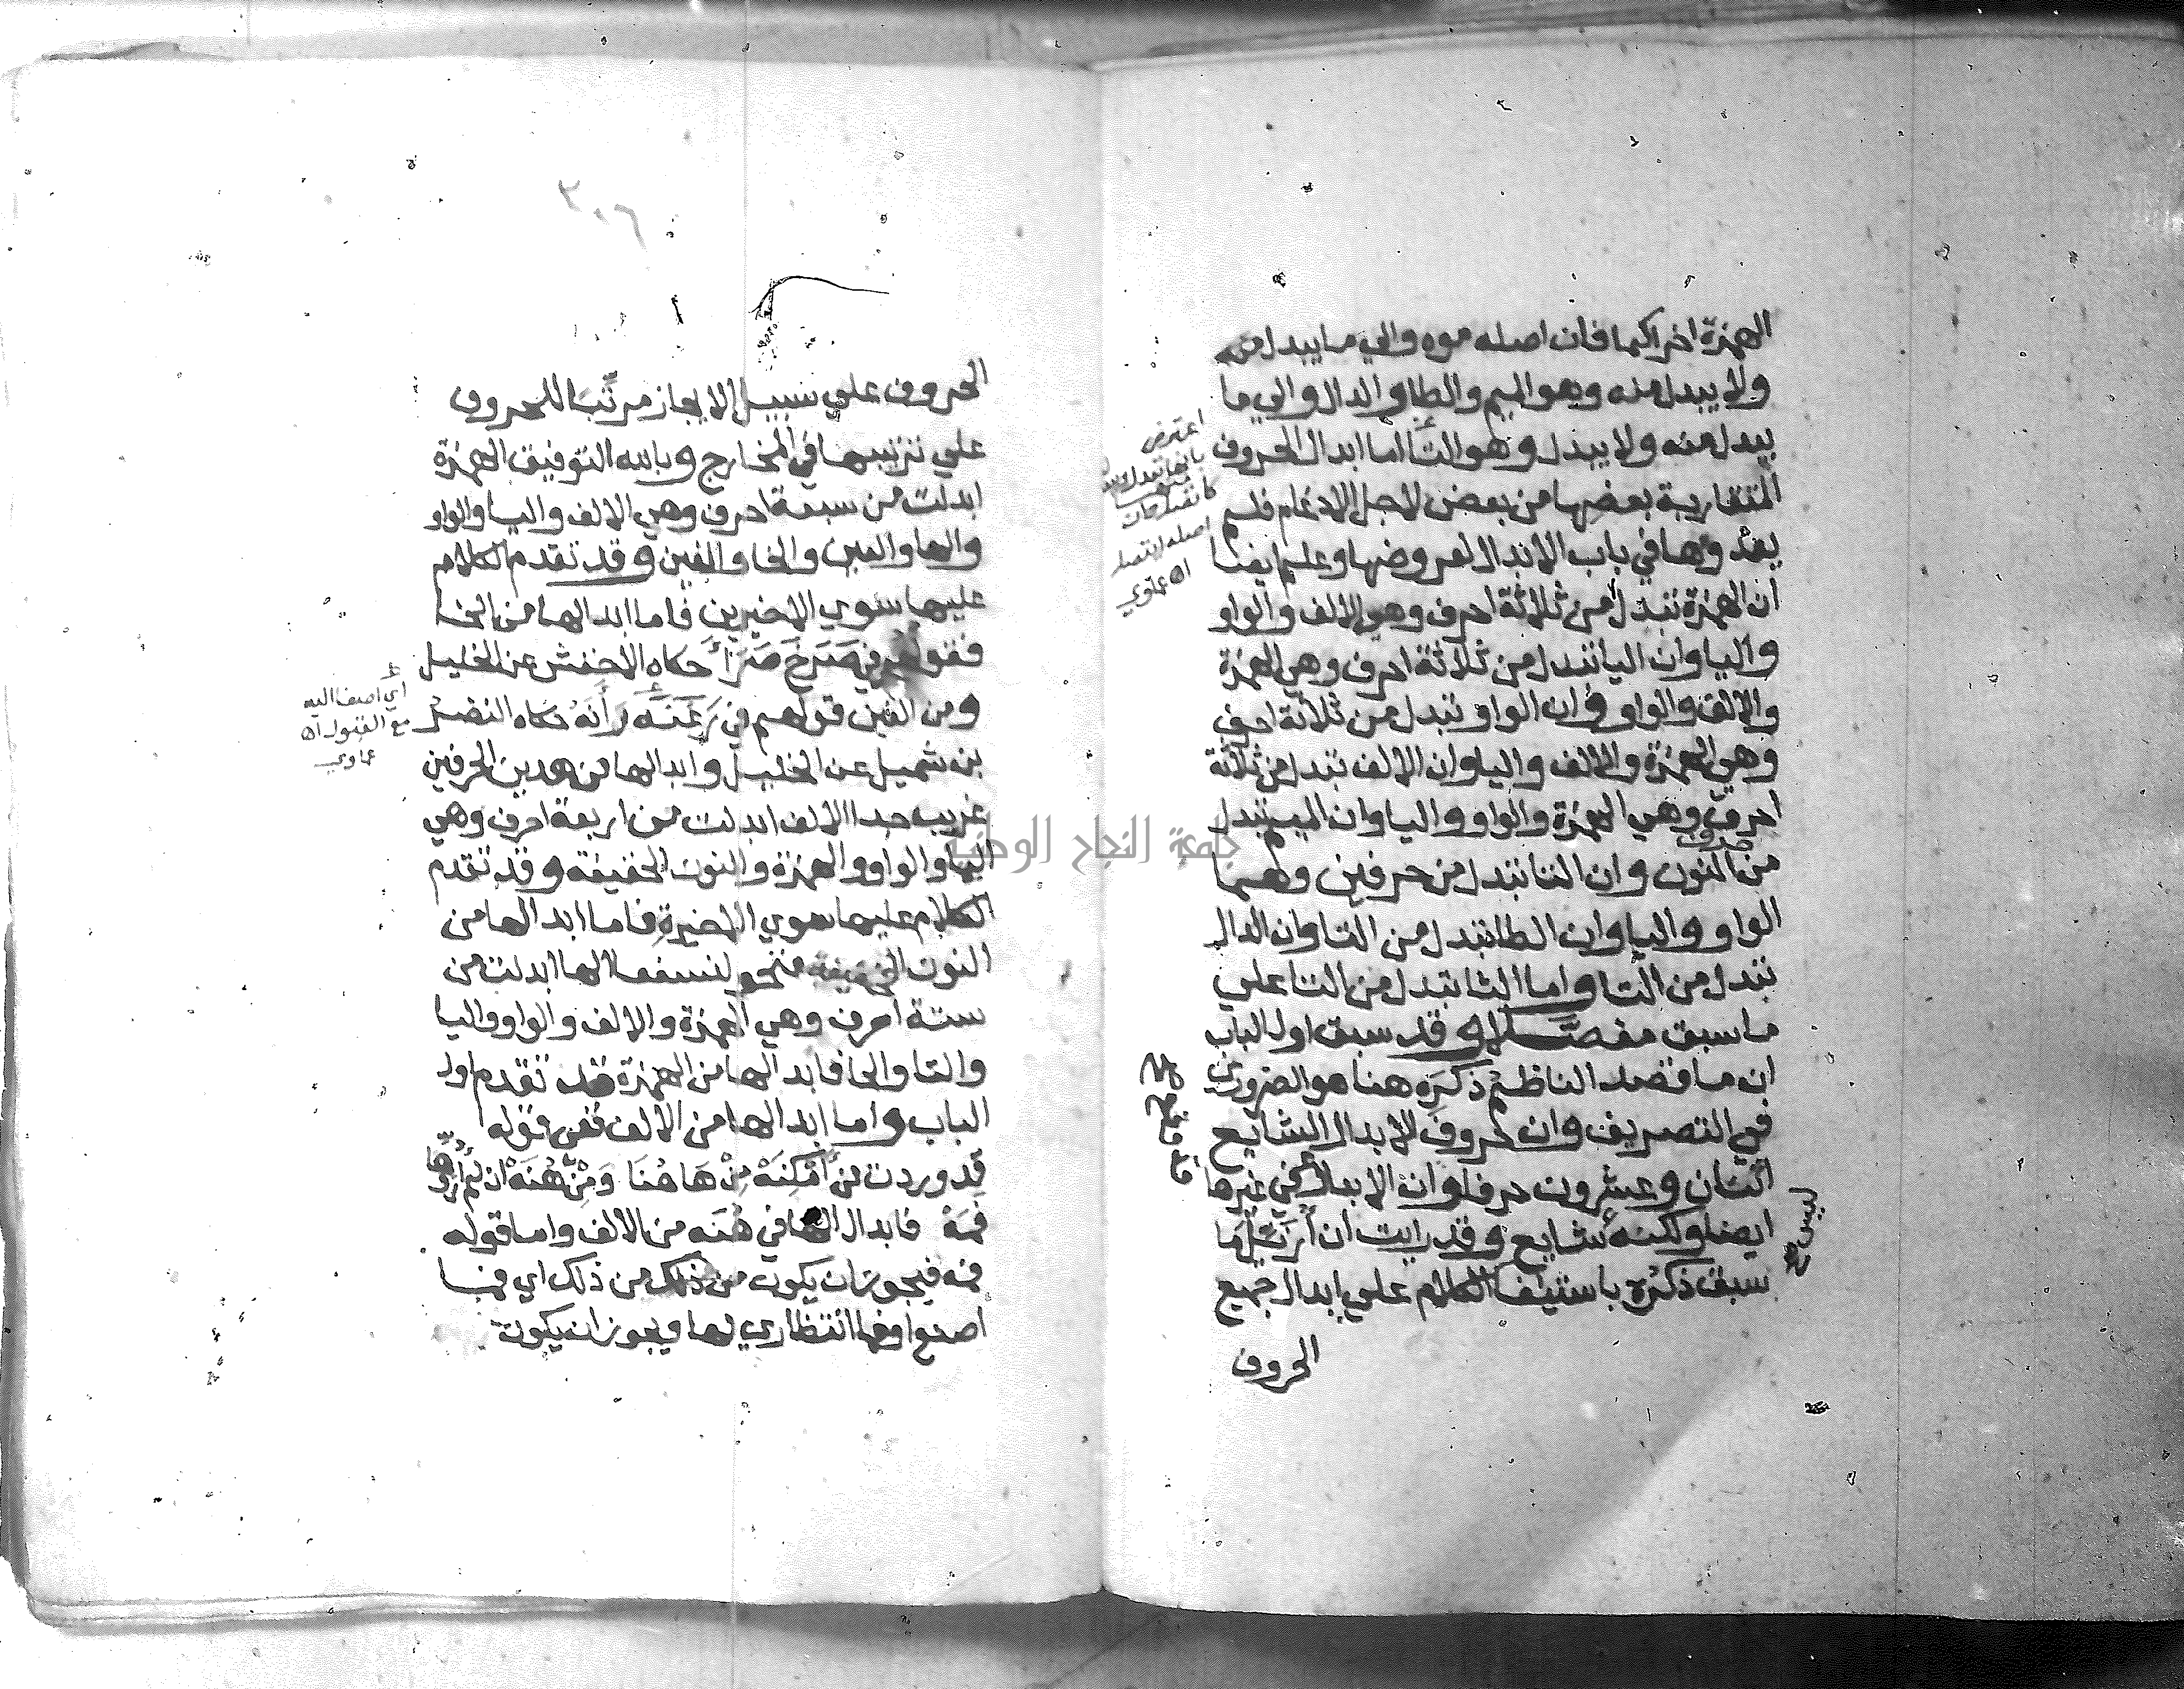 الهمزة اخراكما فان اصله موه والي ما يبدل منه
ولا يبدل منه وهو الميم والطا والدال والي ما
يبدل منه ولا يبدل وهو التا اما ابدال الحروف
المتقاربة بعضها من بعض لاجل الادغام فلم
يعدوها في باب الابدال لعروضها وعلم ايضا
ان الهمزة تبدل من ثلاثة احرف وهي الالف والواو
واليا وان اليا تبدل من ثلاثة احرف وهي الهمزة
والالف والواو وان الواو تبدل من ثلاثة احرف
وهي الهمزة والالف واليا وان الالف تبدل من ثلاثة
احرف وهي الهمزة والواو واليا وان الميم تبدل
من النون وان التا تبدل من حرفين وهما
الواو واليا وان الطا تبدل من التا وان الدال
تبدل من التا واما الثا تبدل من التا علي
ما سبق مفصلا وقد سبق اول الباب
ان ما قصد الناظم ذكره هنا هو الضروري
في التصريف وان حروف الابدال الشايع
اثنان وعشرون حرفا وان الابدال في غيرها
ايضا ولكنه شايع وقد رايت ان ارتل ما
ليس
سبق ذكره باستيفا الكلام علي ابدال جميع
الحروف
اعترض
بانها تبدل
اصله
اه عماوي
٣٠٦
الحروف علي سبيل الايجاز مرتبا للحروف
علي ترتيبها في المخارج وبالله التوفيق الهمزة
ابدلت من سبعة احرف وهي الالف واليا والواو
والها والعين والخا والغين وقد تقدم الكلام
عليها سوي الاخيرين فاما ابدالها من الخا
فقولهم في صَرَخَ صَرَأَ حكاه الاخفش عن الخليل
ومن الغين قولهم في رَغَنَه رَأَنَهُ حكاه النضر
بن شميل عن الخليل وابدالها من هدين الحرفين
غريب جدا الالف ابدلت من اربعة احرف وهي
اليا والواو والهمزة والنون الخفيفة وقد تقدم
الكلام عليها سوي الاخيرة فاما ابدالها من
النون الخفيفة فنحو لنسفعا الها ابدلت من
ستة احرف وهي الهمزة والالف والواو واليا
والتا والحا فابدالها من الهمزة قد تقدم اول
الباب واما ابدالها من الالف ففي قوله
قد وردت من أمْكِنَهْ مِنْ هَا هُنَا وَمِنْ هُنَهْ ان لم أُرَوِّها
فَمَهْ فابدال الها في هُنَه من الالف واما قوله
فمه فيجوز ان يكون من ذلك من ذلك اي فما
اصنع او فما انتظاري لها ويجوز ان يكون
أي اضف اليه
مع القبول اه
عماوي
جامعة النجاح الوطنية